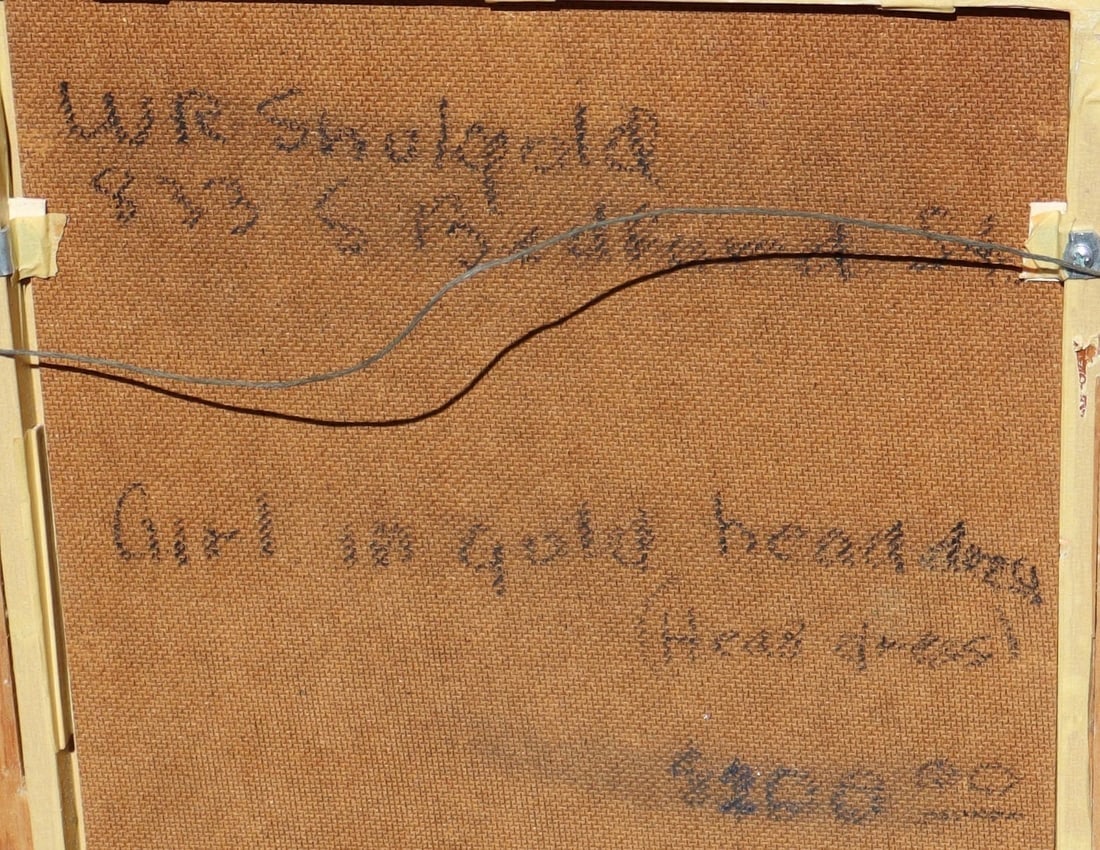 WR Shulgold
833 S Bedford St
Girl in gold head dress
(Head dress)
$200 00